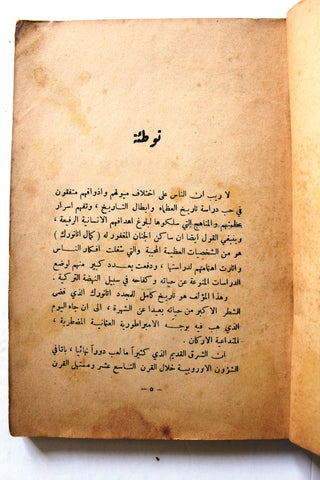 توطئة
لا ريب ان الناس على اختلاف ميولهم واذواقهم متفقون
في حب دراسة تاريخ العظماء وابطال التاريخ ، وتفهم اسرار
عظمتهم والمناهج التي سلكوها لبلوغ اهدافهم الانسانية الرفيعة ،
وينبغي القول ايضا ان ساكن الجنان المغفور له ( كمال اتاتورك )
هو من الشخصيات العظيمة المحببة والتي شغلت افكار الناس
واثارت اهتمامهم لدراستها ، ودفعت بعدد كبير منهم لوضع
الدراسات المنوعة عن حياته وكفاحه في سبيل النهضة التركية .
وهذا المؤلف هو تاريخ كامل للمجدد اتاتورك الذي قضى
الشطر الاكبر من حياته بعيدا عن الشهرة ، الى ان جاء اليوم
الذي هب فيه بوجه الامبراطورية العثمانية المضطربة ،
المتداعية الاركان .
ان الشرق القديم الذي كثيراً ما لعب دوراً نهائيا ، باتافي
الشؤون الاوروبية خلال القرن التاسع عشر ومستهل القرن
— ٥ —